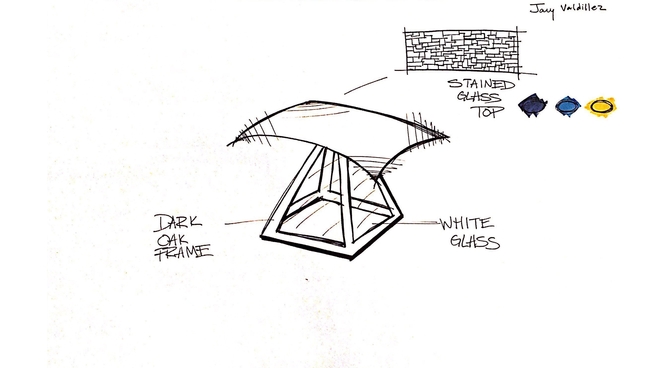 Jory Valdillez
STAINED
GLASS
TOP
DARK
OAK
FRAME
WHITE
GLASS